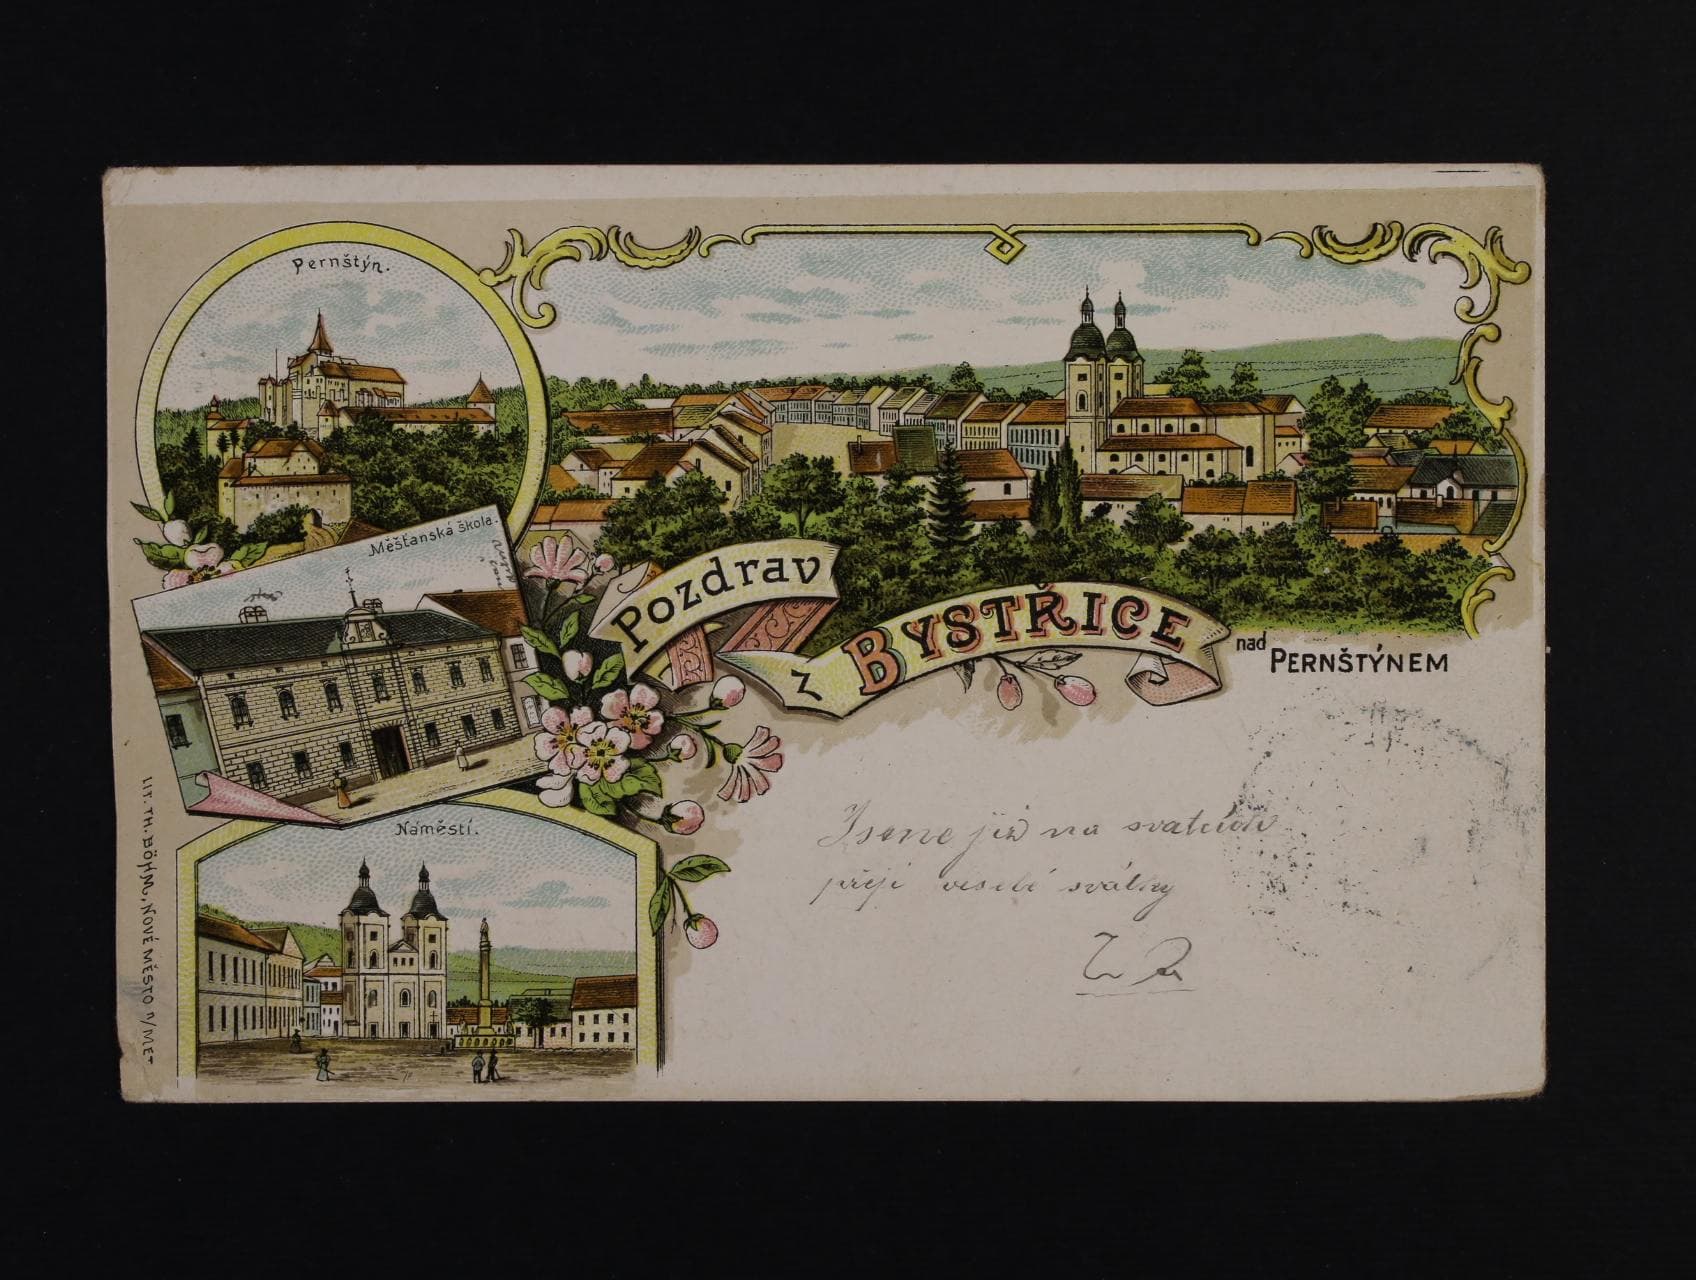 Pernštýn.
Měšťanská škola.
Náměstí.
Pozdrav
z BYSTŘICE
nad PERNŠTÝNEM
Jsme již na
přeji veselé svátky
LIT. TH. BÖHM, NOVÉ MĚSTO n/MET